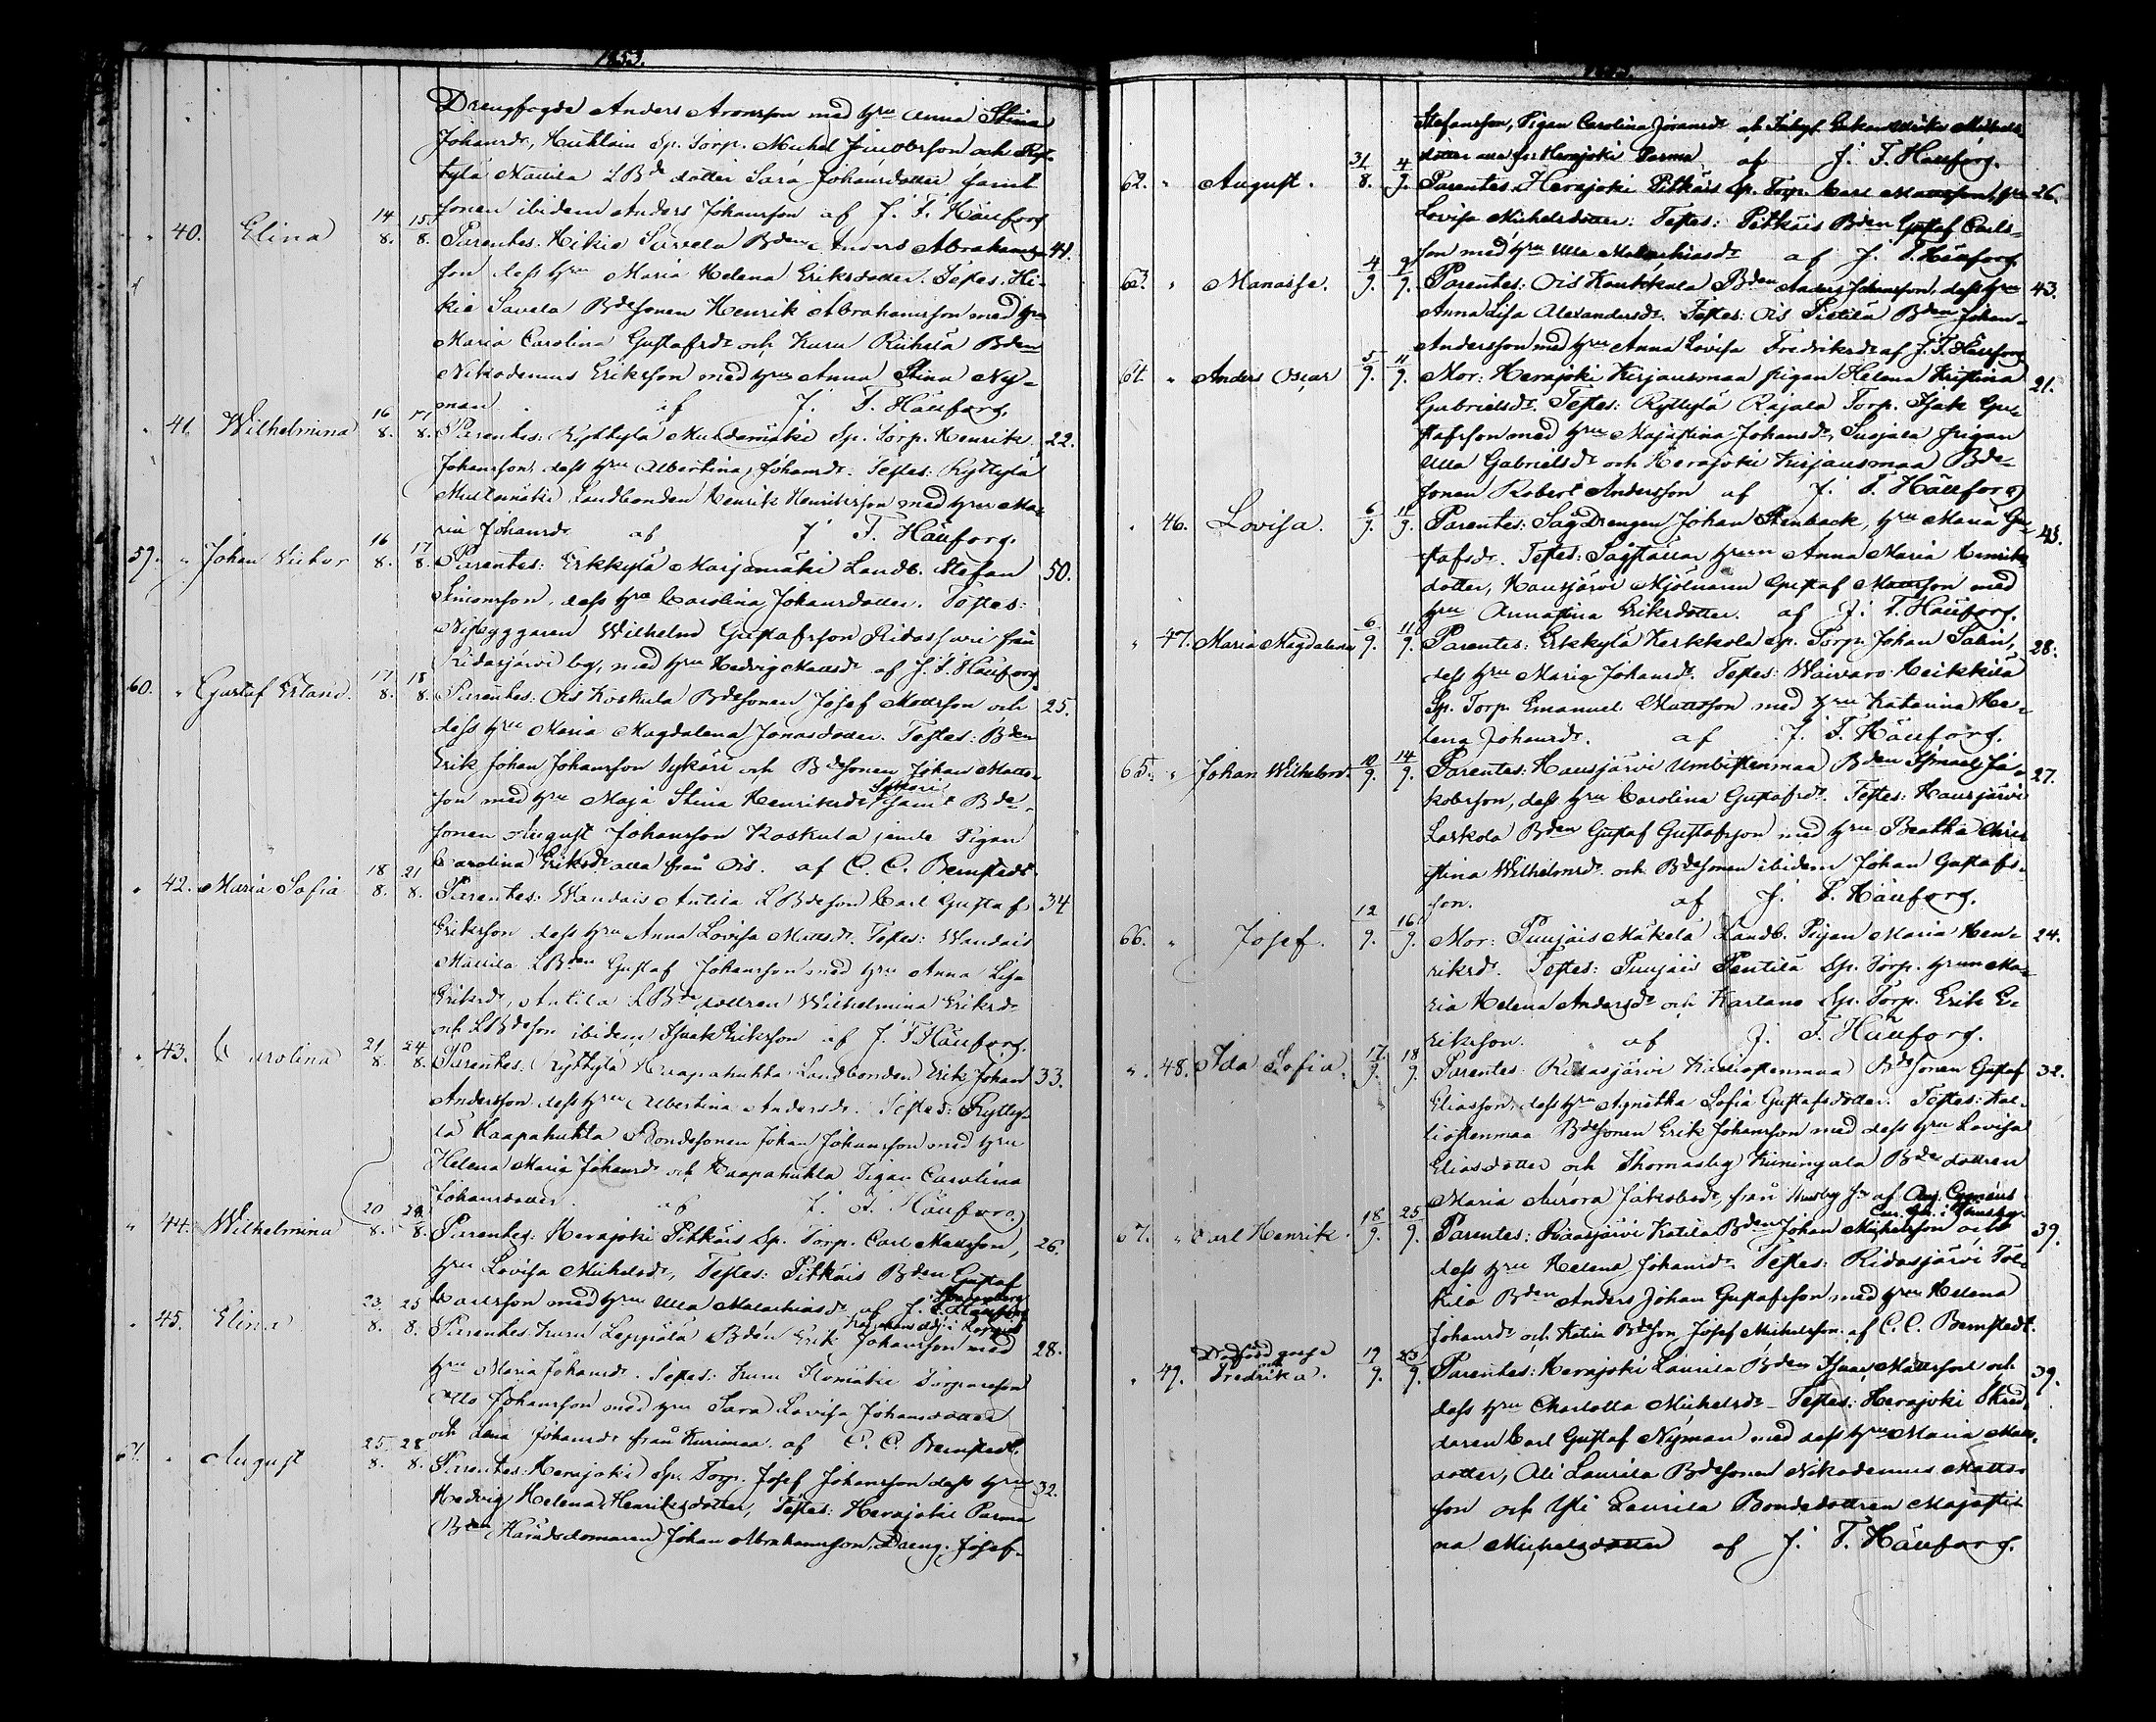 1853.
Drengfogde Anders Aronsson med hru Anna Stina
Johansdr, Huhtain Sp. Torp. Michel Jacobsson och Ryt-
tylä Mattila LBde dotter Sara Johansdotter samt
sonen ibidem Anders Johansson af J. T. Hällfors
" 40. Elina 14/8. 15/8. Parentes: Hikiä Savela Bden Anders Abrahams- 41.
son dess hru Maria Helena Eriksdotter. Testes: Hi-
kiä Savela Bdesonen Henrik Abrahamsson med hru
Maria Carolina Gustafsdr och Kuru Bden
Nikodemus Eriksson med hru Anna Stina Ny-
man. af J. T. Hällfors.
" 41. Wilhelmina 16/8. 17/8. Parentes: Ryttylä Multamäki Sp. Torp. Henrik 22.
Johansson, dess hru Albertina Johansdr. Testes: Ryttylä
Multamäki Landbonden Henrik Henriksson med hru Ma-
ria Johansdr af J. T. Hällfors.
59. " Johan Victor 16/8. 17/8. Parentes: Erkkylä Marjamäki Landb. Stefan 50.
Simonsson, dess hru Carolina Johansdotter. Testes:
Wilhelm Gustafsson Ridassaari från
Ridasjärvi by, med hru Hedvig Mattsdr af J. T. Hällfors
60. " Gustaf Erland. 17/8. 18/8. Parentes: Ois Koskula Bdesonen Josef Mattsson och 25.
dess hru Maria Magdalena Jonasdotter. Testes: Bden
Erik Johan Johansson Sykäri och Bdesonen Johan Matts-
son med hru Maja Stina Henriksdr Sykäri samt Bde-
sonen August Johansson Koskula jemte Pigan
Carolina Eriksdr alla från Ois. af C. C. Bernstedt.
" 42. Maria Sofia 18/8. 21/8. Parentes: Wandais Antila LBdeson Carl Gustaf 34
Eriksson dess hru Anna Lovisa Mattsdr. Testes: Wandais
Mattila LBden Gustaf Johansson med hru Anna Lisa
Eriksdr, Antila LBde dottren Wilhelmina Eriksdr
och LBdeson ibidem Isaak Eriksson af J. T. Hällfors.
" 43. Carolina 21/8. 24/8. Parentes: Ryttylä Haapahuhta Landbonden Erik Johan 33.
Andersson dess hru Albertina Andersdr. Testes: Rytty-
lä Haapahuhta Bondesonen Johan Johansson med hru
Helena Maria Johansdr och Haapahuhta Pigan Carolina
Johansdotter. af J. T. Hällfors.
" 44. Wilhelmina 20/8. 28/8. Parentes: Herajoki Pitkäis Sp. Torp. Carl Mattsson, 26.
hru Lovisa Michelsdr, Testes: Pitkäis Bden Gustaf
Carlsson med hru Ulla Malachiasdr af J.
" 45. Elina 23/8. 25/8. Parentes: Kuru Leppälä Bden Erik Johansson med 28.
hru Maria Johansdr. Testes: Kuru Torparsson
Otto Johansson med hru Sara Lovisa Johansdotter
och Lena Johansdr från Kurimaa. af C. C. Bernstedt.
61. " August 25/8. 28/8. Parentes: Herajoki Sp. Torp. Josef Johansson dess hru 32.
Hedvig Helena Henriksdotter, Testes: Herajoki Parma
Bden Häradsdomaren Johan Abrahamsson, Dreng. Josef
Stefansson, Pigan Carolina Johansdr och Ulrika Michels-
dotter alla från Herajoki Parma af J. T. Hällfors.
62. " August. 31/8. 4/9. Parentes. Herajoki Pitkäis Sp. Torp. Carl Mattsson, hru 26.
Lovisa Michelsdotter. Testes: Pitkäis Bden Gustaf Carls-
son med hru Ulla Malachiasdr af J. T. Hällfors.
63. " Manasse. 4/9. 9/9. Parentes: Ois Haukkala Bden Anders Johansson, dess hru 43.
Anna Lisa Alexandersdr. Testes: Ois Sietilä Bden Johan
Andersson med hru Anna Lovisa Fredriksdr af J. T. Hällfors
64. " Anders Oscar 5/9. 11/9. Mor: Herajoki Kirjausmaa pigan Helena Kristina 21.
Gabrielsdr. Testes: Ryttylä Rajala Torp. Isak Gu-
stafsson med hru Majastina Johansdr, Susjala pigan
Ulla Gabrielsdr och Herajoki Kirjausmaa Bde-
sonen Robert Andersson af J. T. Hällfors
" 46. Lovisa. 6/9. 11/9. Parentes: Såg Drengen Johan Stenback, hru Maria Gu- 45.
stafsdr. Testes: hrun Anna Maria Henriks
dotter, Hausjärvi Mjölnaren Gustaf Mattsson med
hru Annastina Eriksdotter. af J. T. Hällfors.
" 47. Maria Magdalena 6/9. 11/9. Parentes: Erkkylä Karkkola Sp. Torp. Johan Salin, 28.
dess hru Maria Johansdr. Testes: Waivaro Heikkilä
Sp. Torp. Emanuel Mattsson med hru Katarina He-
lena Johansdr. af J. T. Hällfors.
65. " Johan Wilhelm. 10/9. 14/9. Parentes: Hausjärvi Umbistenmaa Bden Ismael Ja- 27.
kobsson, dess hru Carolina Gustafsdr. Testes: Hausjärvi
Laskola Bden Gustaf Gustafsson med hru Beatha Chri-
stina Wilhelmsdr och Bdesonen ibidem Johan Gustafs-
son. af J. T. Hällfors.
66. " Josef. 12/9. 16/9. Mor: Puujais Mäkelä Landb. Pigan Maria Hen- 24.
riksdr. Testes: Puujais Pentilä Sp. Torp. hrun Ma-
ria Helena Andersdr och Kartano Sp. Torp. Erik E-
riksson. af J. T. Hällfors.
" 48. Ida Sofia. 17/9. 18/9. Parentes: Ridasjärvi Kaliostenmaa Bdesonen Gustaf 32.
Eliasson, dess hru Agnetha Sofia Gustafsdotter. Testes: Kal-
liostenmaa Bdesonen Erik Johansson med dess hru Lovisa
Eliasdotter och Thomasby Kuningala Bde dottren
Maria Aurora Jakobsdr, från Husby sn af Aug. Cygnæus
67. " Carl Henrik. 18/9. 25/9. Parentes: Ridasjärvi Katila Bden Johan Michelsson och 39.
dess hru Helena Johansdr. Testes: Ridasjärvi Töl-
kilä Bden Anders Johan Gustafsson med hru Helena
Johansdr och Katila Bdeson Josef Michelsson. af C. C. Bernstedt.
Dödfödd gosse
" 49. och Fredrika. 19/9. 25/9. Parentes: Herajoki Laurila Bden Isaac Mattsson och 39.
dess hru Charlotta Michelsdr. Testes: Herajoki Skräd-
daren Carl Gustaf Nyman med dess hru Maria Matts-
dotter, Ali Laurila Bdesonen Nikodemus Matts-
son och Yli Laurila Bondedottren Majasti-
na Michelsdotter af J. T. Hällfors.